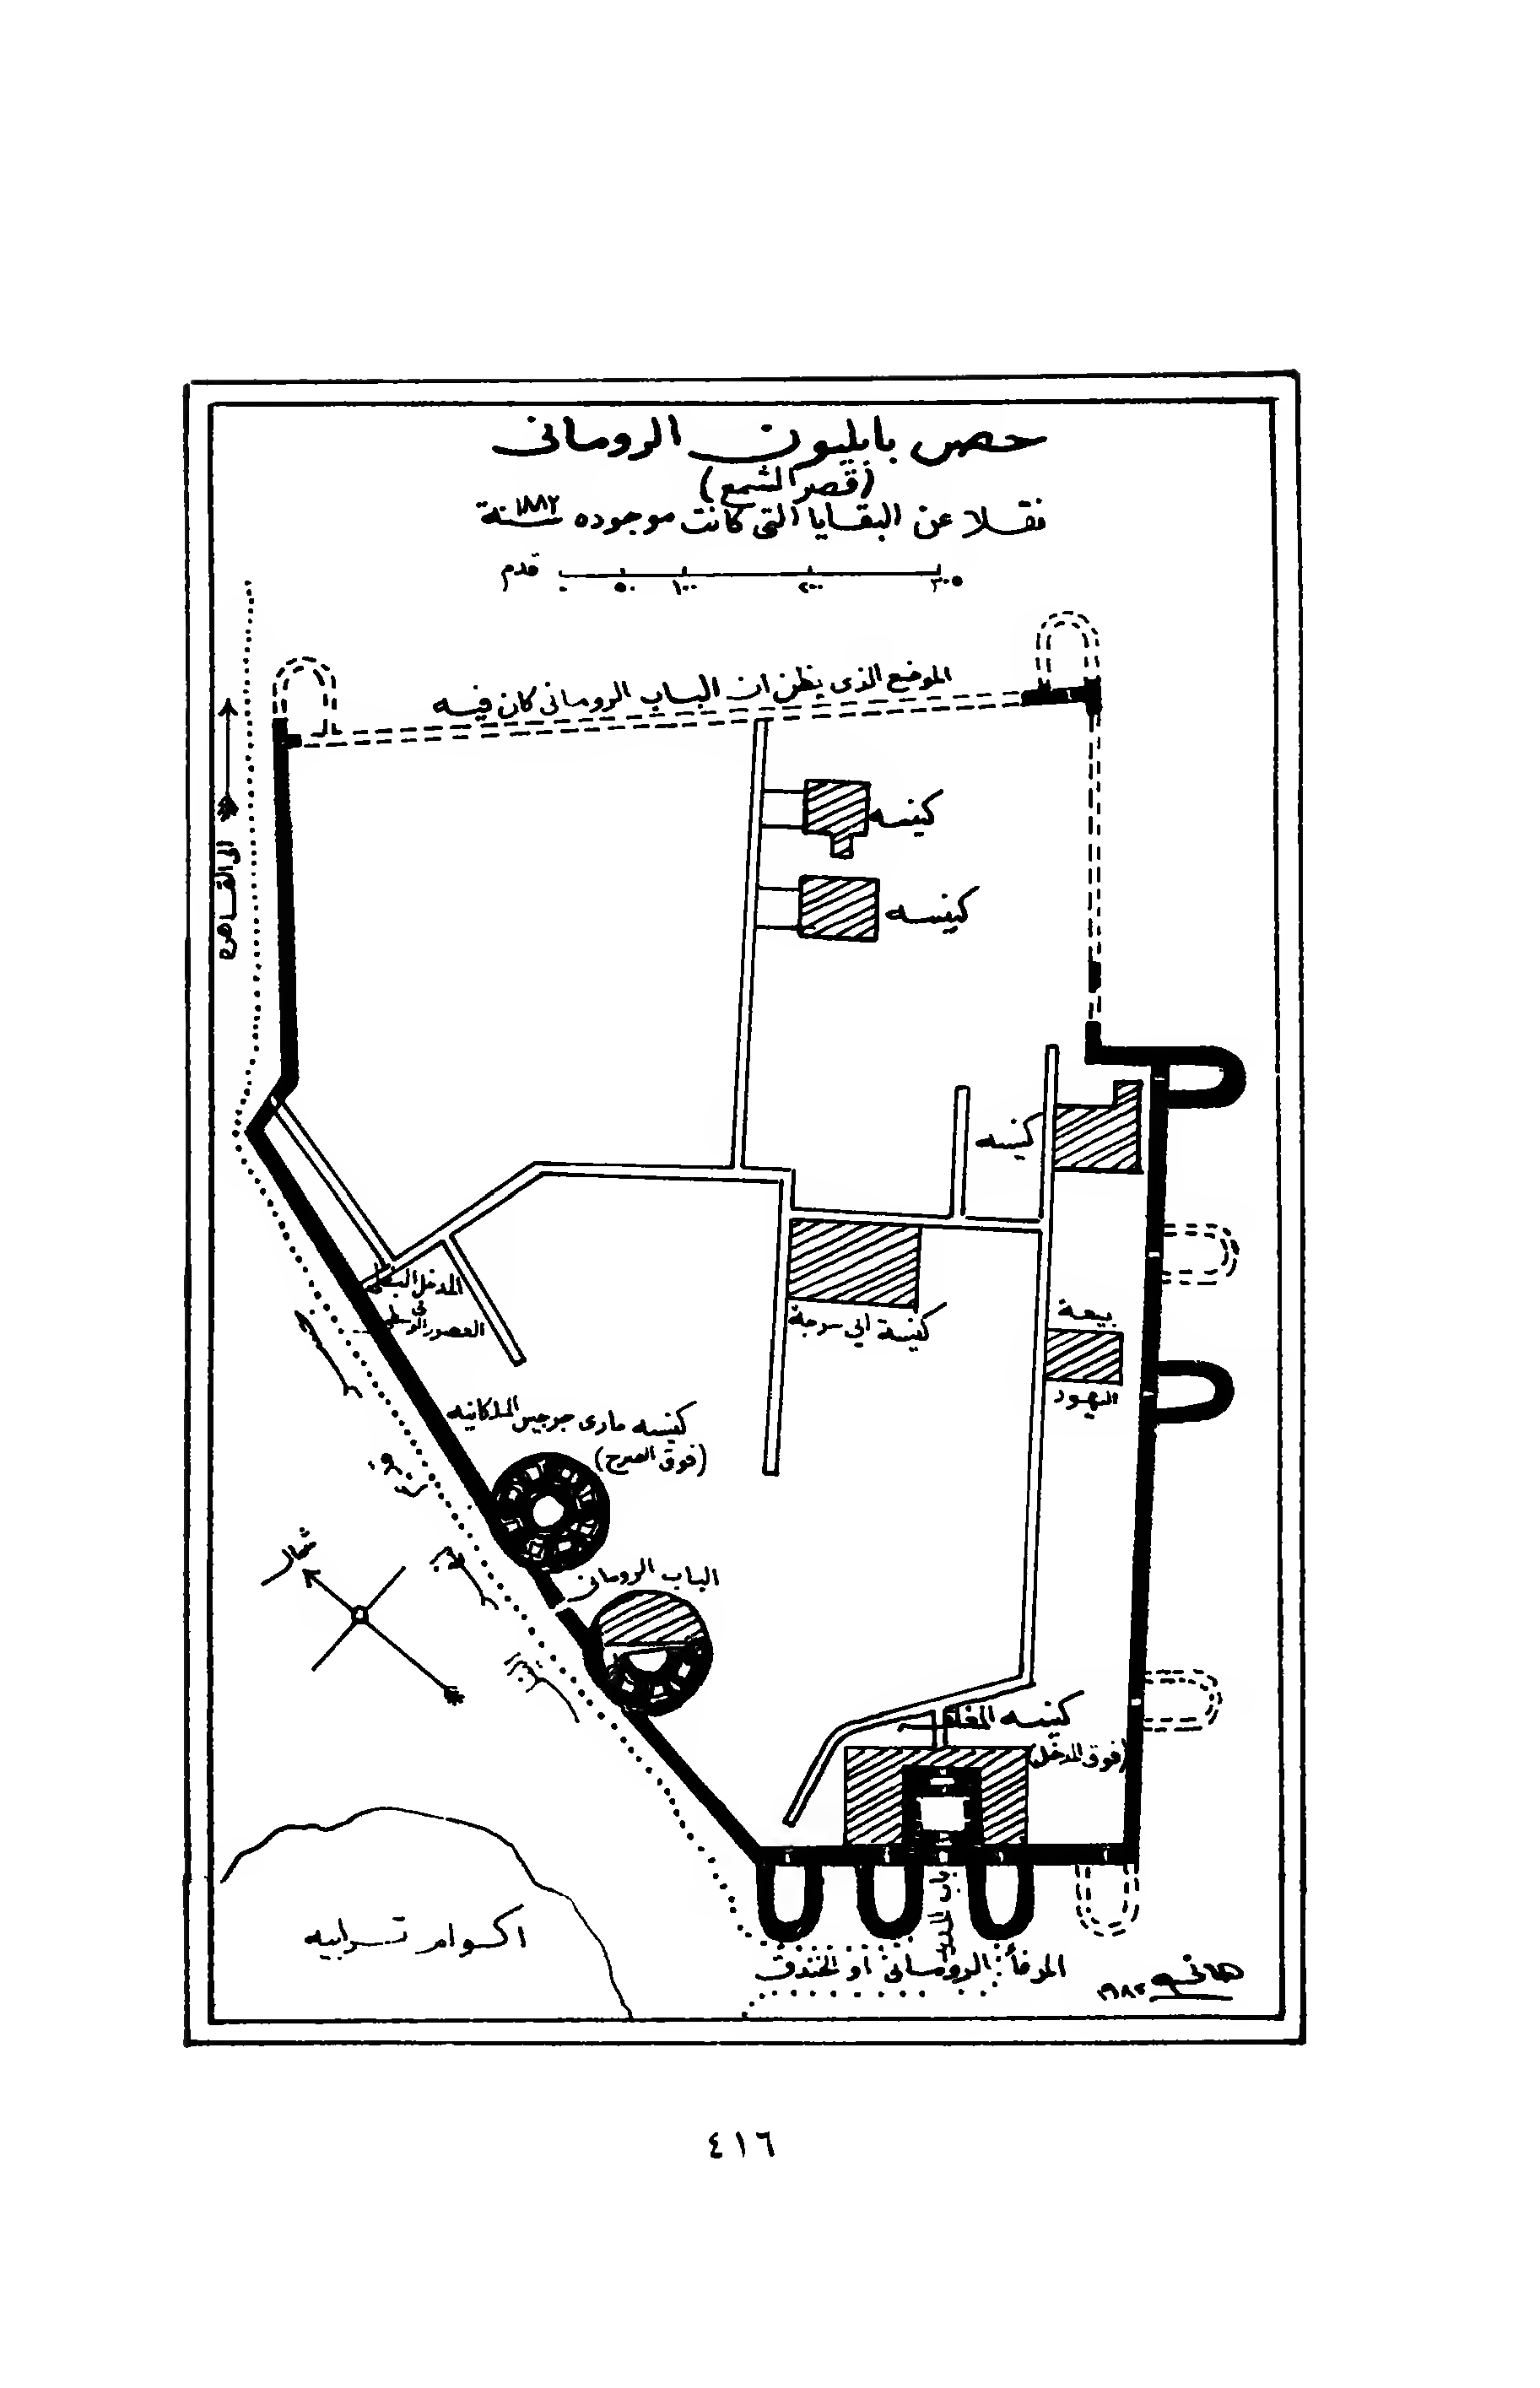 حصن بابليون الرومانى
(قصر الشمع)
نقلا عن البقايا التى كانت موجوده سنة ١٨٨٢
قدم ٠ ٥٠ ١٠٠ ٢٠٠ ٣٠٠
الموضع الذى يظن ان الباب الرومانى كان فيه
الى القاهره
كنيسه
كنيسه
كنيسه
المدخل
فى
العصور
كنيسة ابى سرجة
بيعة
اليهود
كنيسه مارى جرجس الملكانيه
(فوق الصرح)
الباب الرومانى
شمال
كنيسه المعلقه
(فوق المدخل)
باب
اكوام ترابيه
المرفأ الرومانى أو الخندق
هانى
١٩٨٢
٤١٦